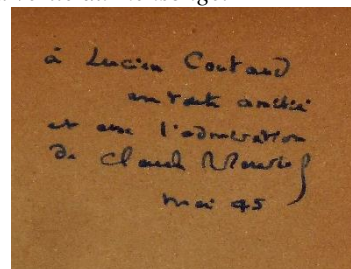 à Lucien Coutaud
en toute amitié
et avec l'admiration
de Claude Mauriac
mai 45